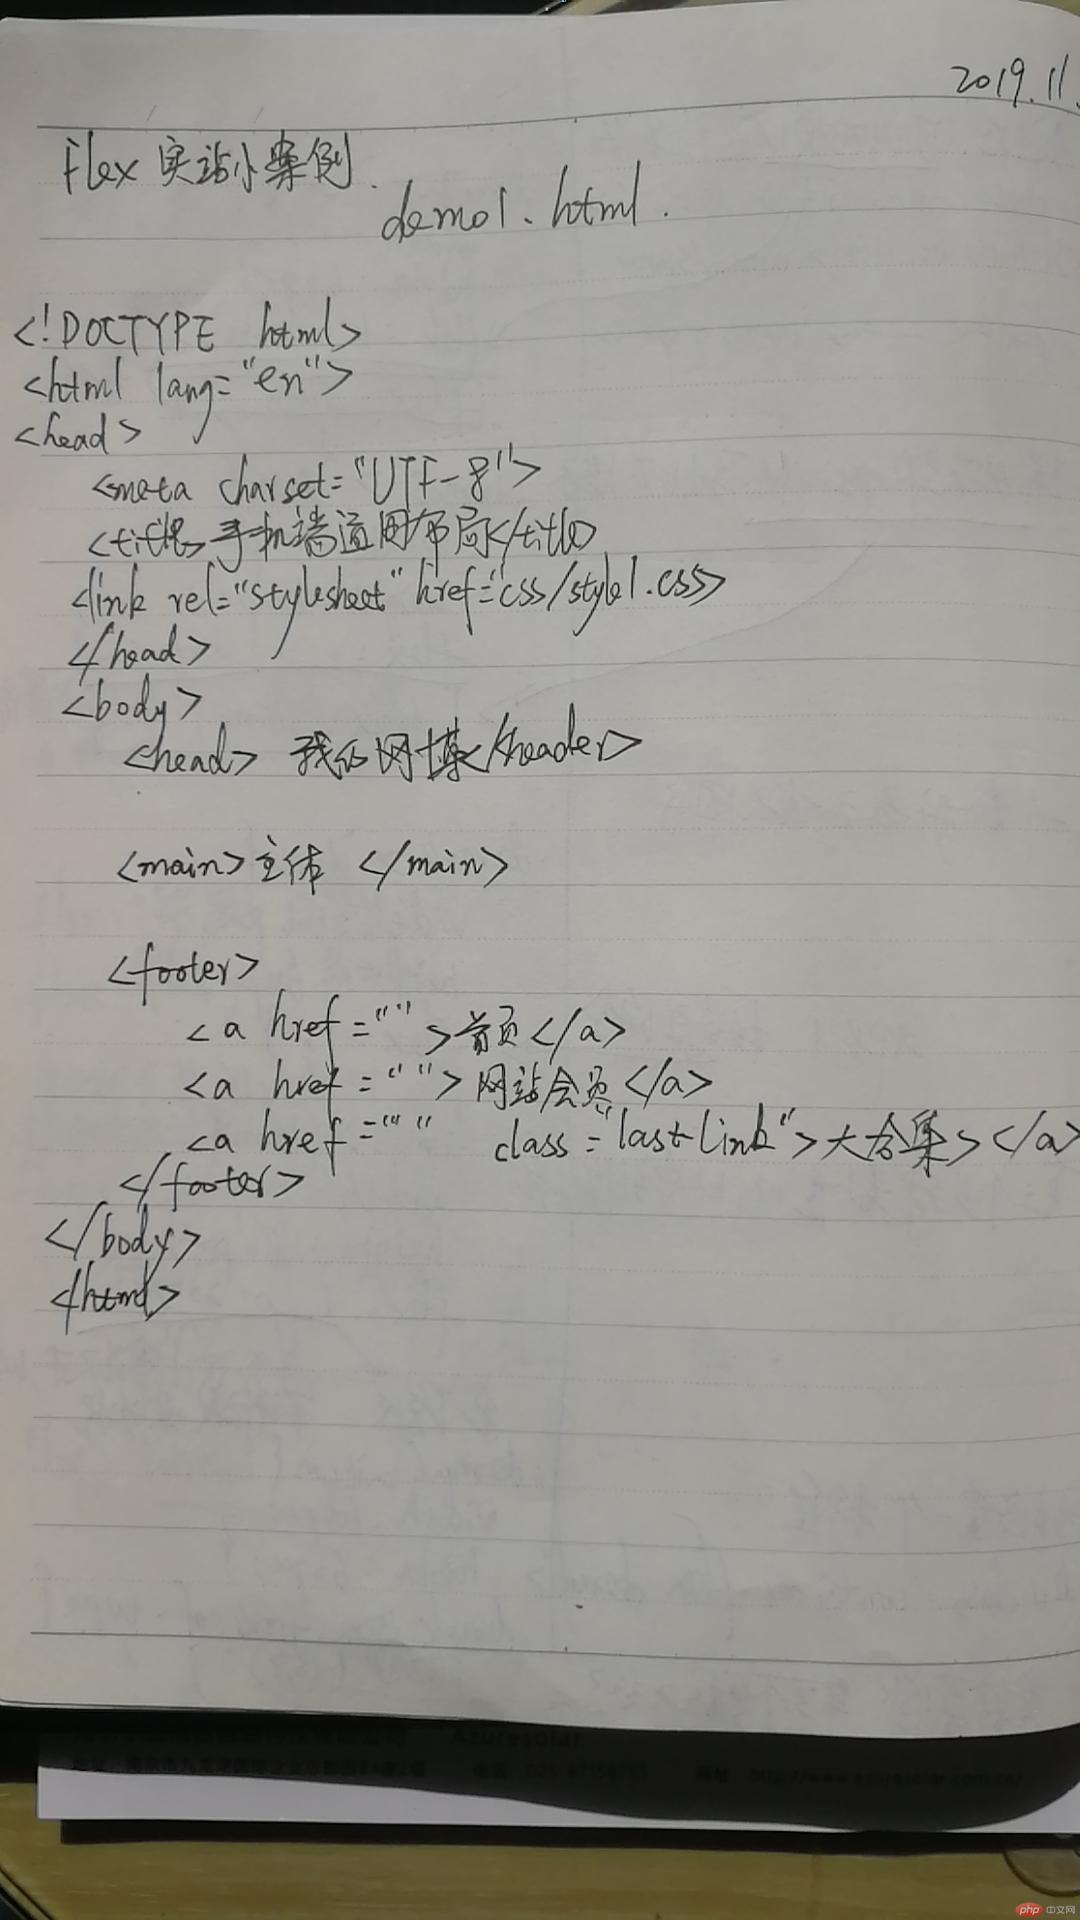 2019.11.
Flex 实站小案例.
demo1.html.
<!DOCTYPE html>
<html lang="en">
<head>
<meta charset="UTF-8">
<title>手机端通用布局</title>
<link rel="stylesheet" href="css/style1.css>
</head>
<body>
<head> 我的网博</header>
<main>主体 </main>
<footer>
<a href="">首页</a>
<a href=" ">网站会员</a>
<a href=" " class="last-link">大合集></a>
</footer>
</body>
</html>
Azuresolar
php 中文网